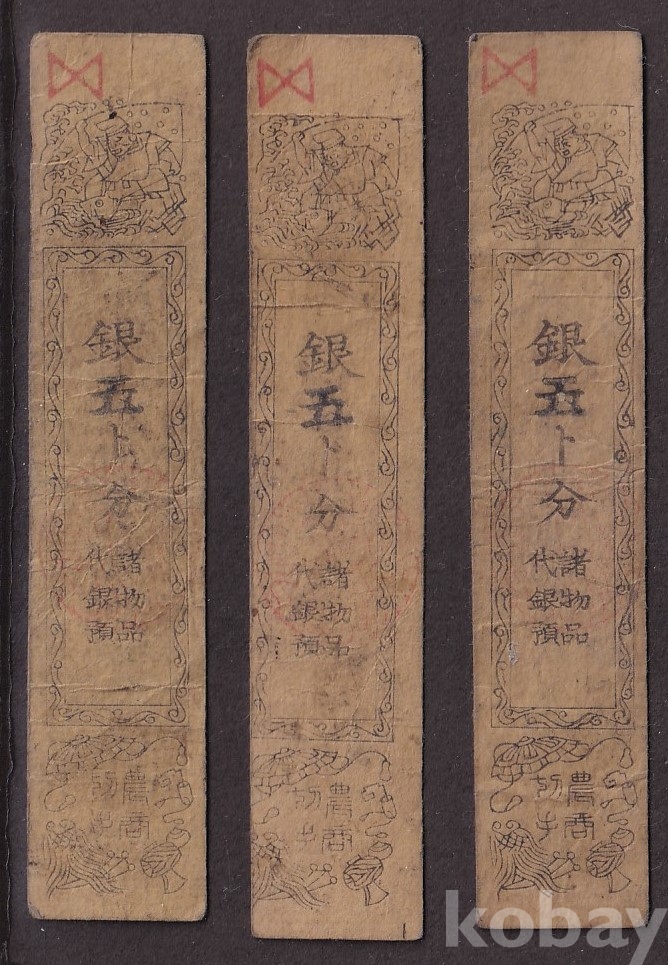 銀五卜分
諸物品
代銀預
農商
切手
銀五卜分
諸物品
代銀預
農商
切手
銀五卜分
諸物品
代銀預
農商
切手
kobay